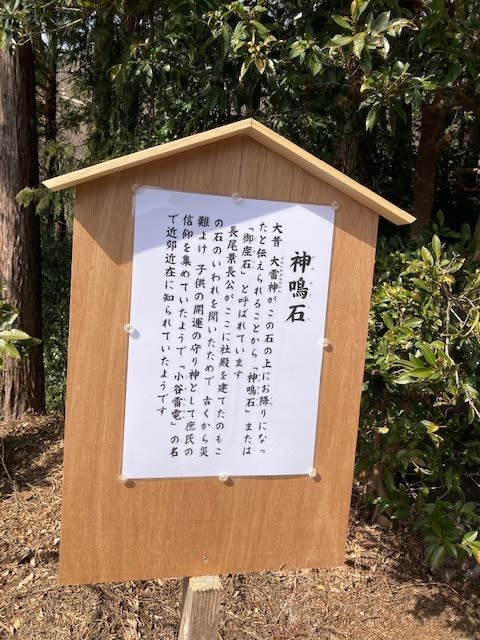 神鳴石
大昔 大雷神がこの石の上にお降りになっ
たと伝えられることから「神鳴石」または
「御座石」と呼ばれています
長尾景長公がここに社殿を建てたのもこ
の石のいわれを聞いたためで 古くから災
難よけ 子供の開運の守り神として庶民の
信仰を集めていたようで「小谷雷電」の名
で近郊近在に知られていたようです